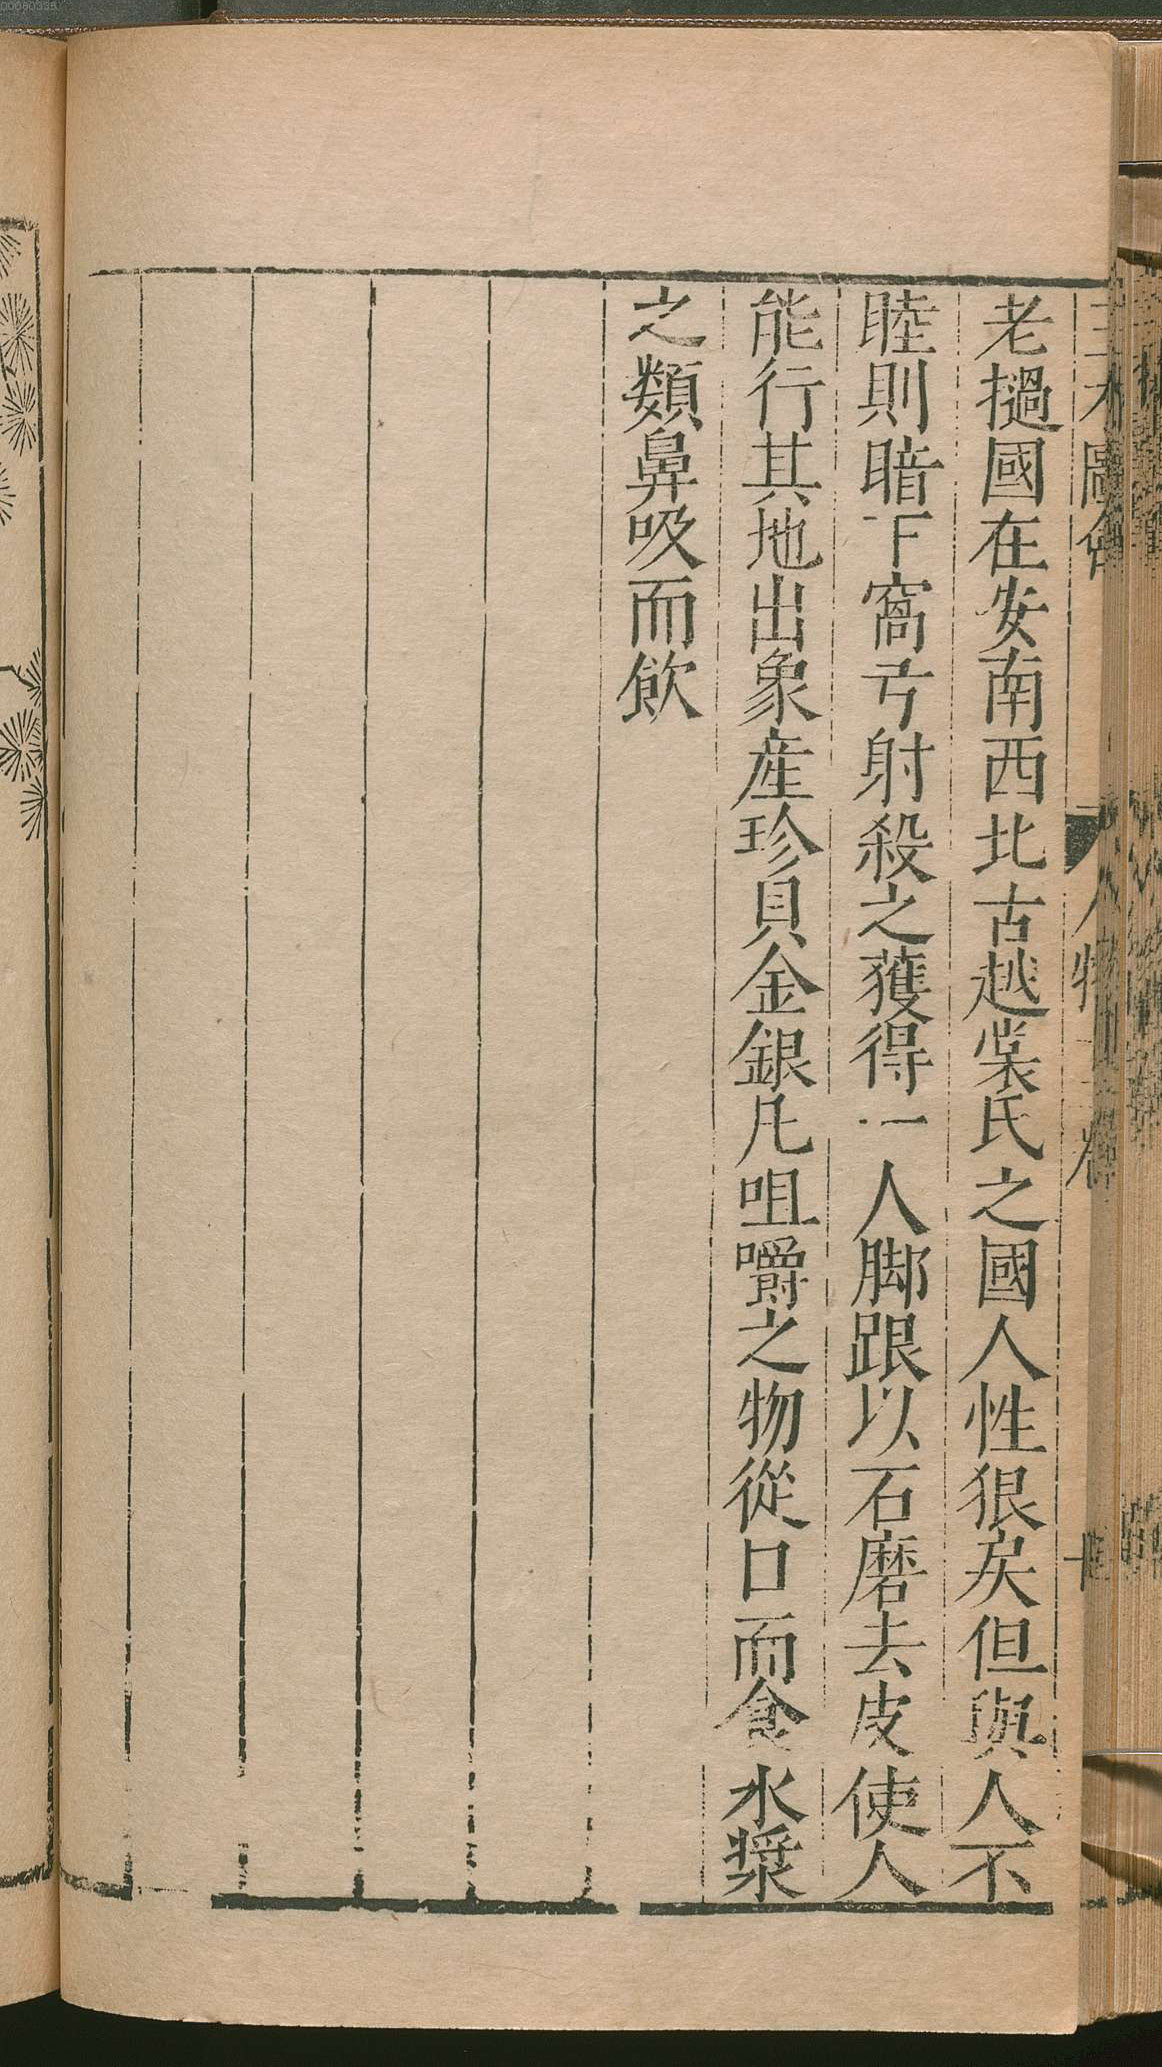 三才圖會 人物十二卷
老撾國在安南西北古越裳氏之國人性狠戾但與人不
睦則暗下窩弓射殺之獲得一人脚跟以石磨去皮使人
能行其地出象産珍貝金銀凡咀嚼之物從口而食水漿
之類鼻吸而飲
00080339